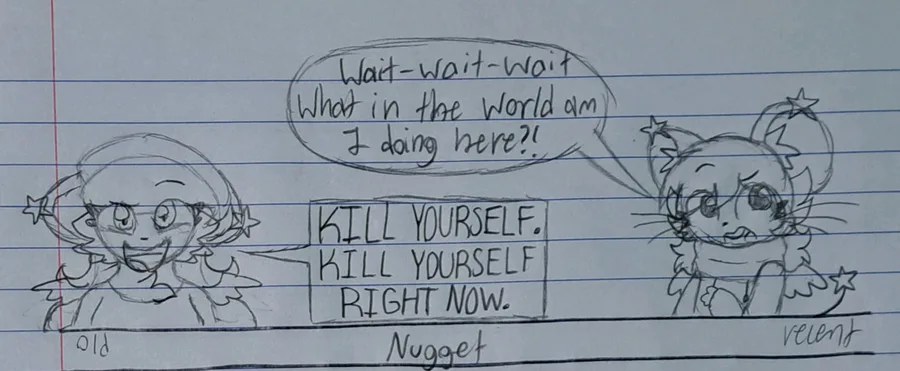 Wait-wait-wait
What in the world am
I doing here?!
KILL YOURSELF.
KILL YOURSELF
RIGHT NOW.
old
Nugget
recent